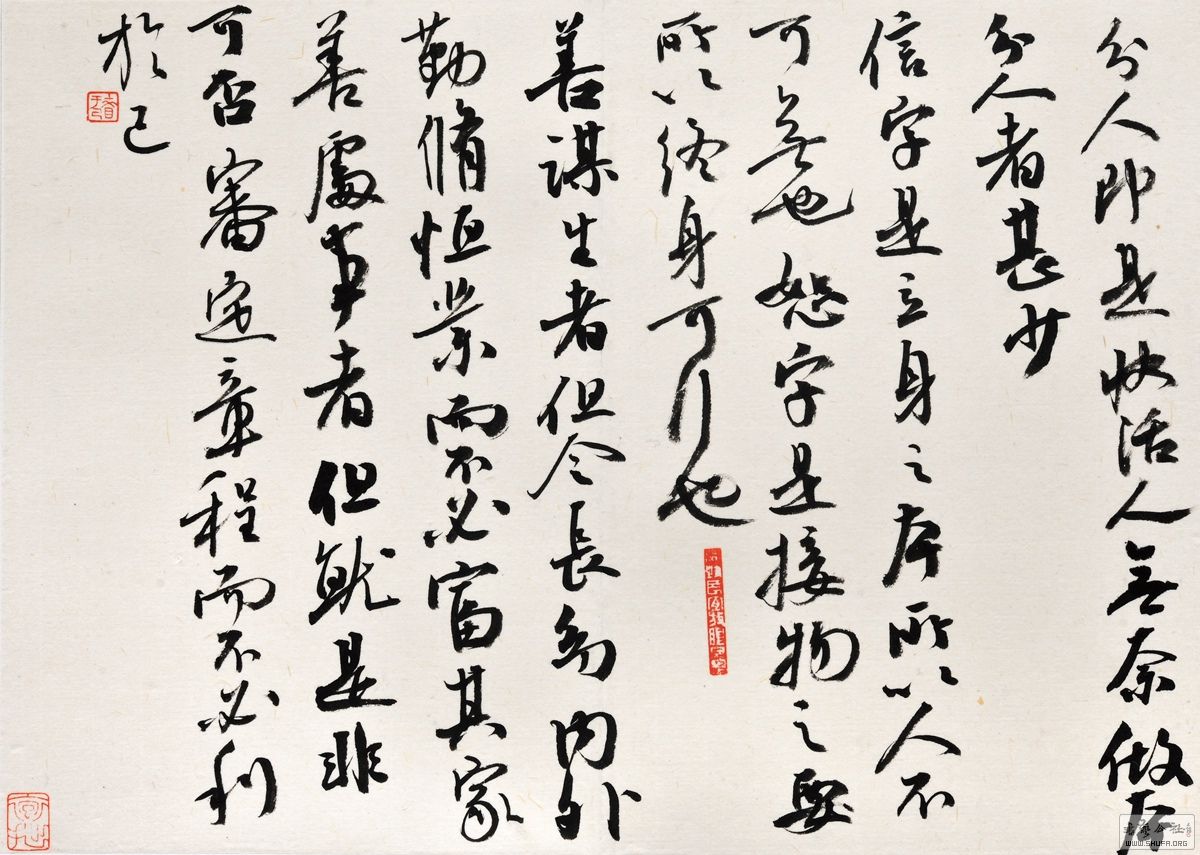 分人即是快活人無奈做本
分人者甚少
信字是立身之本所以人不
可無也恕字是接物之要
所以終身可行也
善謀生者但令長幼内外
勤脩恒業而不必富其家
善處事者但就是非
可否審定章程而不必利
於己
WWW.SHUFA.ORG